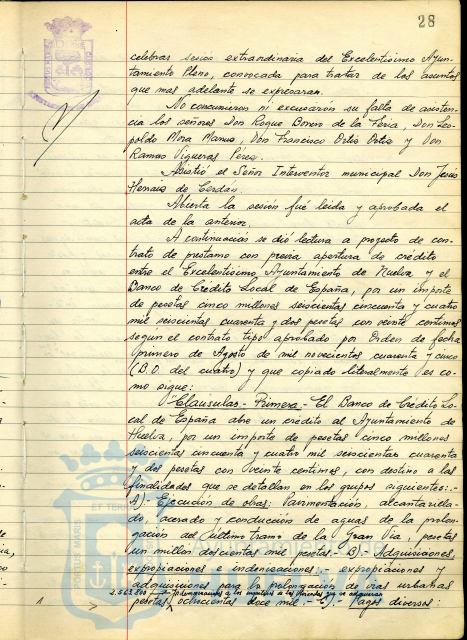 28
celebrar sesión extraordinaria del Excelentísimo Ayun-
tamiento Pleno, convocada para tratar de los asuntos
que mas adelante se expresaran.
No concurrieron ni excusaron su falta de asisten-
cia los señores Don Roque Bonero de la Feria, Don Leo-
poldo Mora Manus, Don Francisco Ortiz Ortiz y Don
Ramon Vigueras Pérez.
Asistió el Señor Interventor municipal Don Jesús
Herraiz de Cerdan.
Abierta la sesión fué leida y aprobada el
acta de la anterior.
A continuación se dió lectura a proyecto de con-
trato de prestamo con previa apertura de crédito
entre el Excelentísimo Ayuntamiento de Huelva y el
Banco de Crédito Local de España, por un importe
de pesetas cinco millones seiscientos cincuenta y cuatro
mil seiscientos cuarenta y dos pesetas con veinte centimos
segun el contrato tipo aprobado por Orden de fecha
primero de Agosto de mil novecientos cuarenta y cinco
(B.O. del cuatro) y que copiado literalmente es co-
mo sigue:
"Clausulas.- Primera.- El Banco de Crédito Lo-
cal de España abre un crédito al Ayuntamiento de
Huelva, por un importe de pesetas cinco millones
seiscientos cincuenta y cuatro mil seiscientas cuarenta
y dos pesetas con veinte centimos, con destino a las
finalidades que se detallan en los grupos siguientes:-
A).- Ejecución de obras: Pavimentación, alcantarilla-
do, acerado y conducción de aguas de la prolon-
gación del último tramo de la Gran Via, pesetas
un millon doscientas mil pesetas.- B).- Adquisiciones,
expropiaciones e indemnizaciones.- expropiaciones y
adquisiciones para la prolongación de vias urbanas
2.562.800
pesetas ochocientas doce mil.- C).- Pagos diversos:
PORTUS MARIS
ET TERRAE